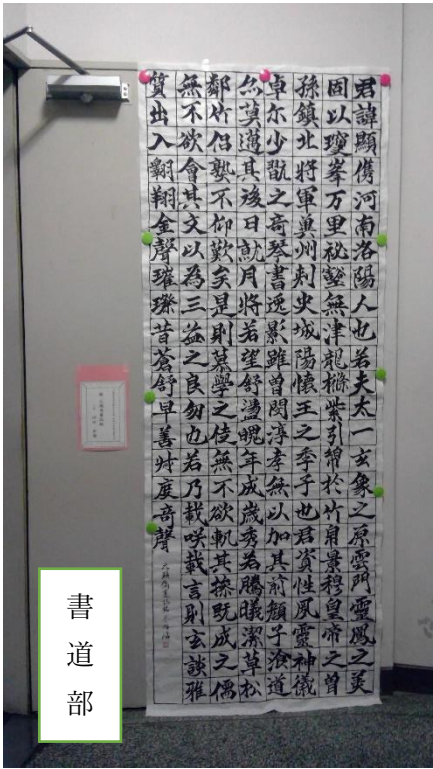 君諱顯儁河南洛陽人也若夫太一玄象之原雲門靈鳳之美
固以瓊峯万里祕壑無津龍樴紫引綿於竹帛景穆皇帝之曾
孫鎮北將軍兾州刺史城陽懷王之季子也君資性夙靈神儀
卓尒少翫之奇琴書逸影雖曾閔淳孝無以加其前顏子湌道
亦莫邁其後日就月將若望舒盪魄年成歲秀若騰曦潔草松
鄰竹侶熟不仰歎矣是則慕學之徒無不欲軌其操既成之儒
無不欲會其文以為三益之良朋也若乃載咲載言則玄談雅
質出入翱翔金聲璀璨昔蒼舒早善叔度奇聲
書道部